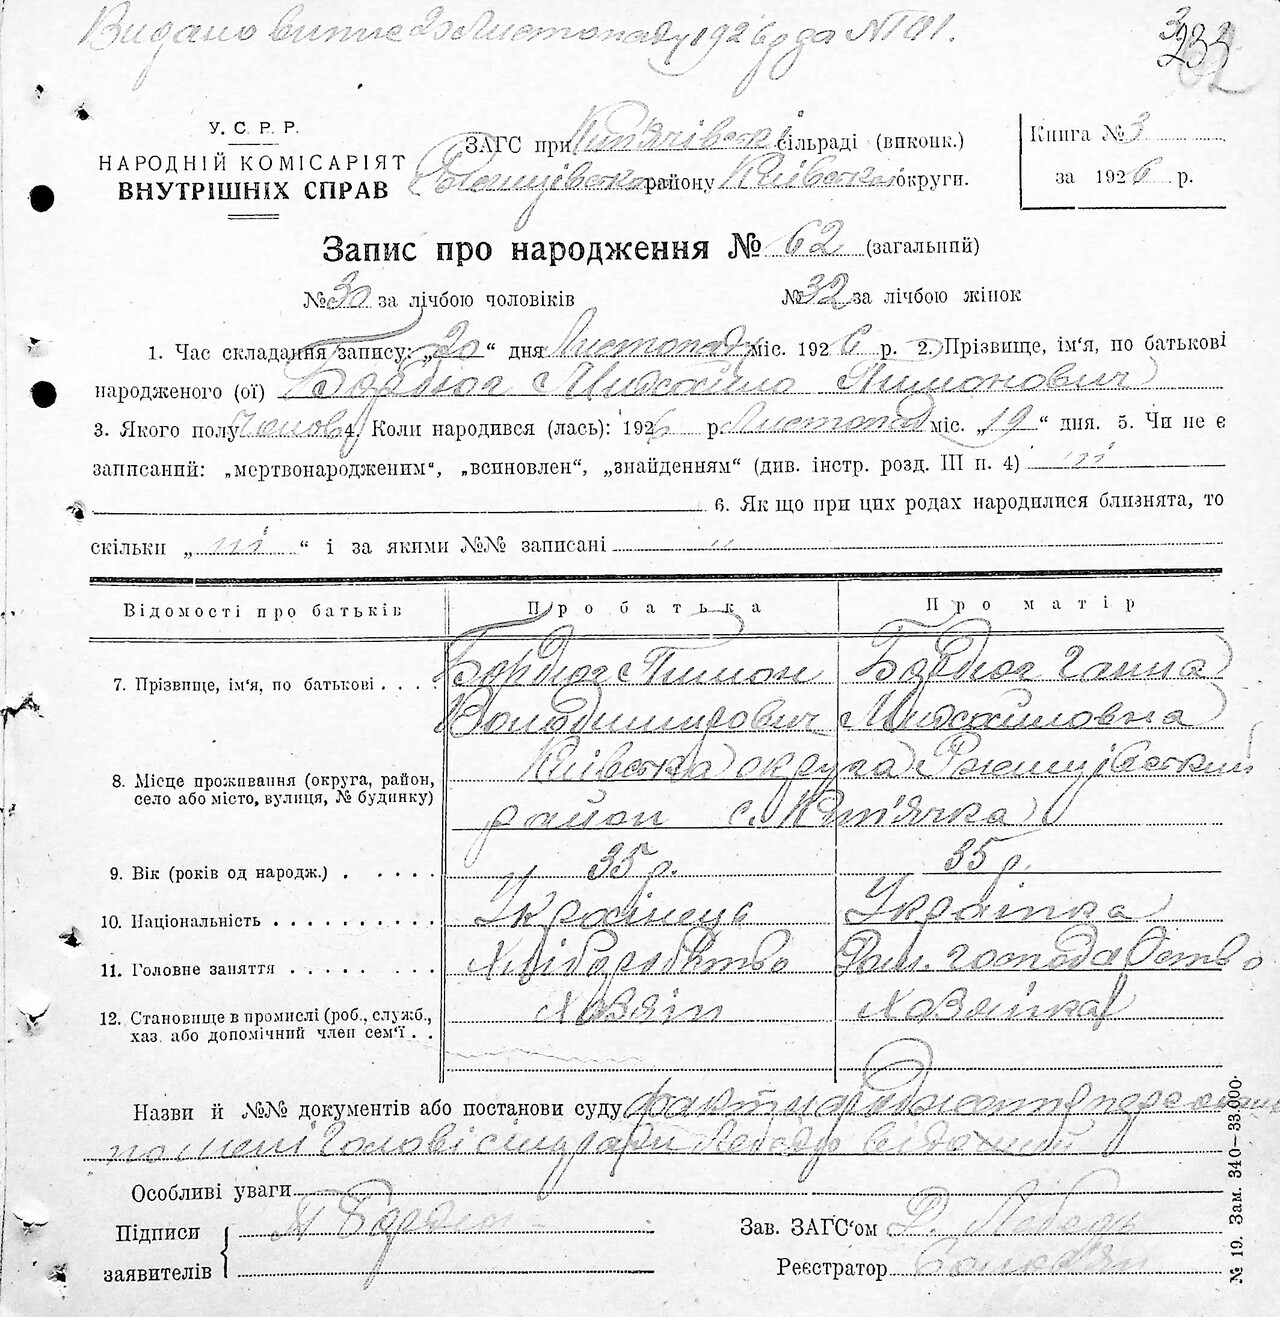 Видано випис 20 Листопаду 1926 р за № 101.
232
У. С. Р. Р.
НАРОДНІЙ КОМІСАРІЯТ
ВНУТРІШНІХ СПРАВ
ЗАГС при Кип'ячівській сільраді (виконк.)
району Київської округи.
Книга № 3
за 1926 р.
Запис про народження № 62 (загальний)
№ 30 за лічбою чоловіків № 32 за лічбою жінок
1. Час складання запису: „20“ дня Листопаду міс. 1926 р. 2. Прізвище, ім'я, по батькові
народженого (ої) Бардюг Михайло Пимонович
3. Якого полу Чолов 4. Коли народився (лась): 1926 р. Листопад міс. „19“ дня. 5. Чи не є
записаний: „мертвонародженим“, „всиновлен“, „знайденням“ (див. інстр. розд. III п. 4) ні
6. Як що при цих родах народилися близнята, то
скільки „ ні “ і за якими №№ записані "
Відомості про батьків Про батька Про матір
7. Прізвище, ім'я, по батькові . . . . Бардюг Пимон Бардюг Ганна
Володимирович Михайловна
8. Місце проживання (округа, район, село або місто, вулиця, № будинку) Київська округа Ржищівський
район с. Кип'ячка
9. Вік (років од народж.) . . . . . 35 р. 35 р.
10. Національність . . . . . . . . . . Українець Українка
11. Головне заняття . . . . . . . . . Хліборобство Дом. господарство
12. Становище в промислі (роб., служб., хаз. або допомічний член сем'ї . . Хозяїн Хозяїка
Назви й №№ документів або постанови суду факт народження персонально
мені Голові сільради Лебедю відомий
Особливі уваги
Підписи
заявителів
П Бардюг
Зав. ЗАГС'ом Д. Лебедь
Реєстратор
№ 19. Зам. 340—33.000.